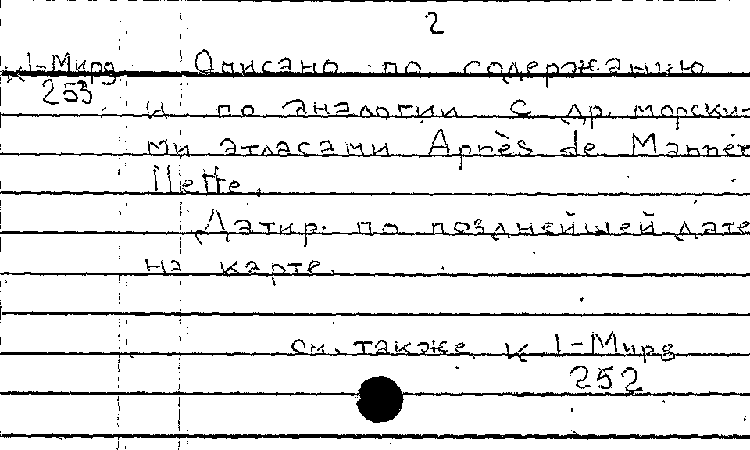 2
К 1-Мирв Описано по содержанию
253
и по аналогии с др. морски-
ми атласами Après de Mannev
illette.
Датир. по позднейшей дате
на карте.
см. также К 1-Мирв
252